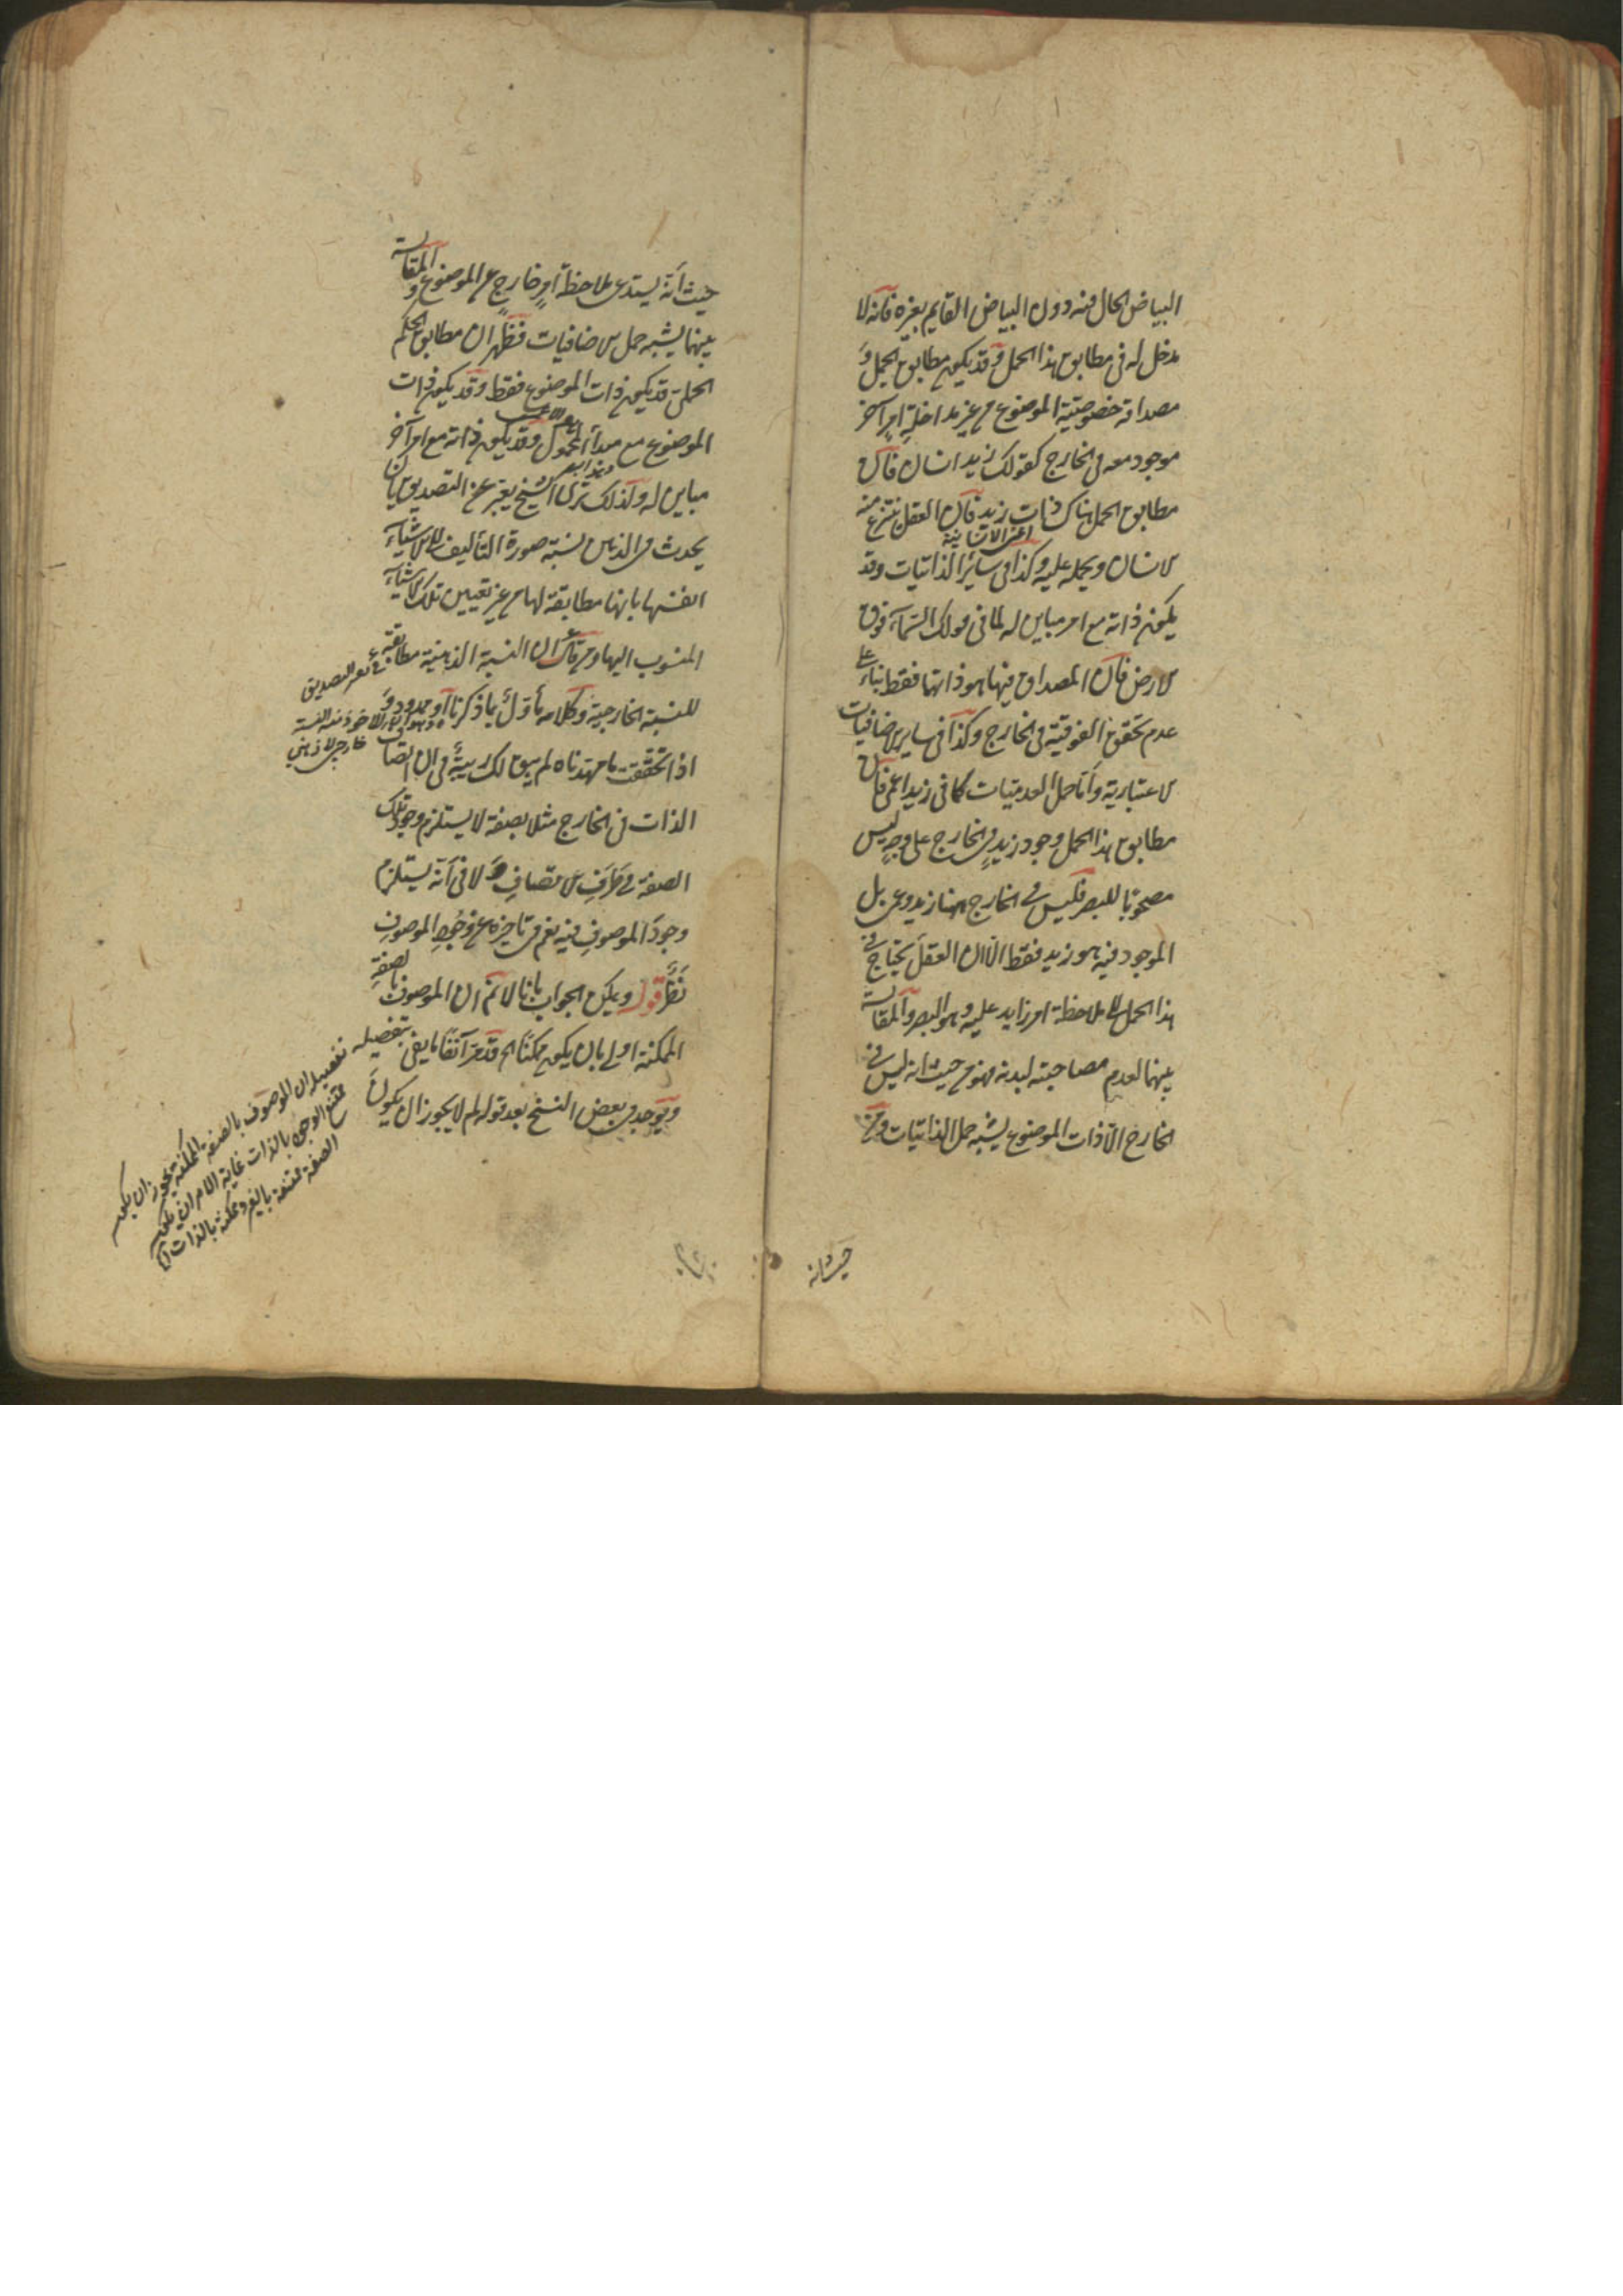 البياض الحال فيه دون البياض القايم بغيره فانه لا
مدخل له في مطابق هذا الحمل وقد يكون مطابق الحمل و
مصداقه خصوصية الموضوع من غير مداخلة امر آخر
موجود معه في الخارج كقولك زيد انسان فان
مطابق الحمل هناك ذات زيد فان العقل ينتزع منه
اعني الانسانية
الانسان ويحمله عليه وكذا في سائر الذاتيات وقد
يكون ذاته مع امر مباين له كما في قولك السماء فوق
الارض فان المصداق فيها هو ذاتها فقط بناء على
عدم تحقق الفوقية في الخارج وكذا في ساير الاضافيات
الاعتبارية واما حمل العدميات كما في زيد اعمى فان
مطابق هذا الحمل وجود زيد في الخارج على وجه ليس
مصحوبا للبصر فليس في الخارج ههنا زيد وعمى بل
الموجود فيه هو زيد فقط الا ان العقل يحتاج في
هذا الحمل الى ملاحظة امر زايد عليه وهو البصر والمقايسة
بينهما لعدم مصاحبته لبدنه فهو من حيث انه ليس في
الخارج الا ذات الموضوع يشبه حمل الذاتيات ومن
حيث انه
حيث انه يستدعي ملاحظة امر خارج عن الموضوع والمقايسة
بينهما يشبه حمل الاضافيات فظهر ان مطابق الحكم
الحملي قد يكون ذات الموضوع فقط وقد يكون ذات
الموضوع مع مبدأ المحمول وقد يكون ذاته مع امر آخر
مباين له ولذلك ترى الشيخ يعبر عن التصديق بان
يحدث في الذهن نسبة صورة التأليف الى الاشياء
انفسها بانها مطابقة لها من غير تعيين تلك الاشياء
المنسوب اليها ومن قال ان النسبة الذهنية مطابقة
في تفسير التصديق
للنسبة الخارجية وكلامه مأول بما ذكرنا او مردود و
خارجي لا ذهني
اذا تحققت ما مهدناه لم يبق لك ريبة في ان اتصاف
الذات في الخارج مثلا بصفة لا يستلزم وجود تلك
الصفة في ظرف الاتصاف ولا في انه يستلزم
وجود الموصوف فيه نعم في تاخره عن وجود الموصوف
نظر قوله ويمكن الجواب بانا لا نم ان الموصوف بالصفة
الممكنة اولى بان يكون ممكنا الخ قد مر آنفا ما يفي بتفصيله
تفصيله ان الموصوف بالصفة الممكنة يجوز ان يكون
ممتنع الوجود بالذات غاية الامر ان يكون
الصفة ممتنعة بالغير وممكنة بالذات
ويوجد في بعض النسخ بعد قوله لم لا يجوز ان يكون